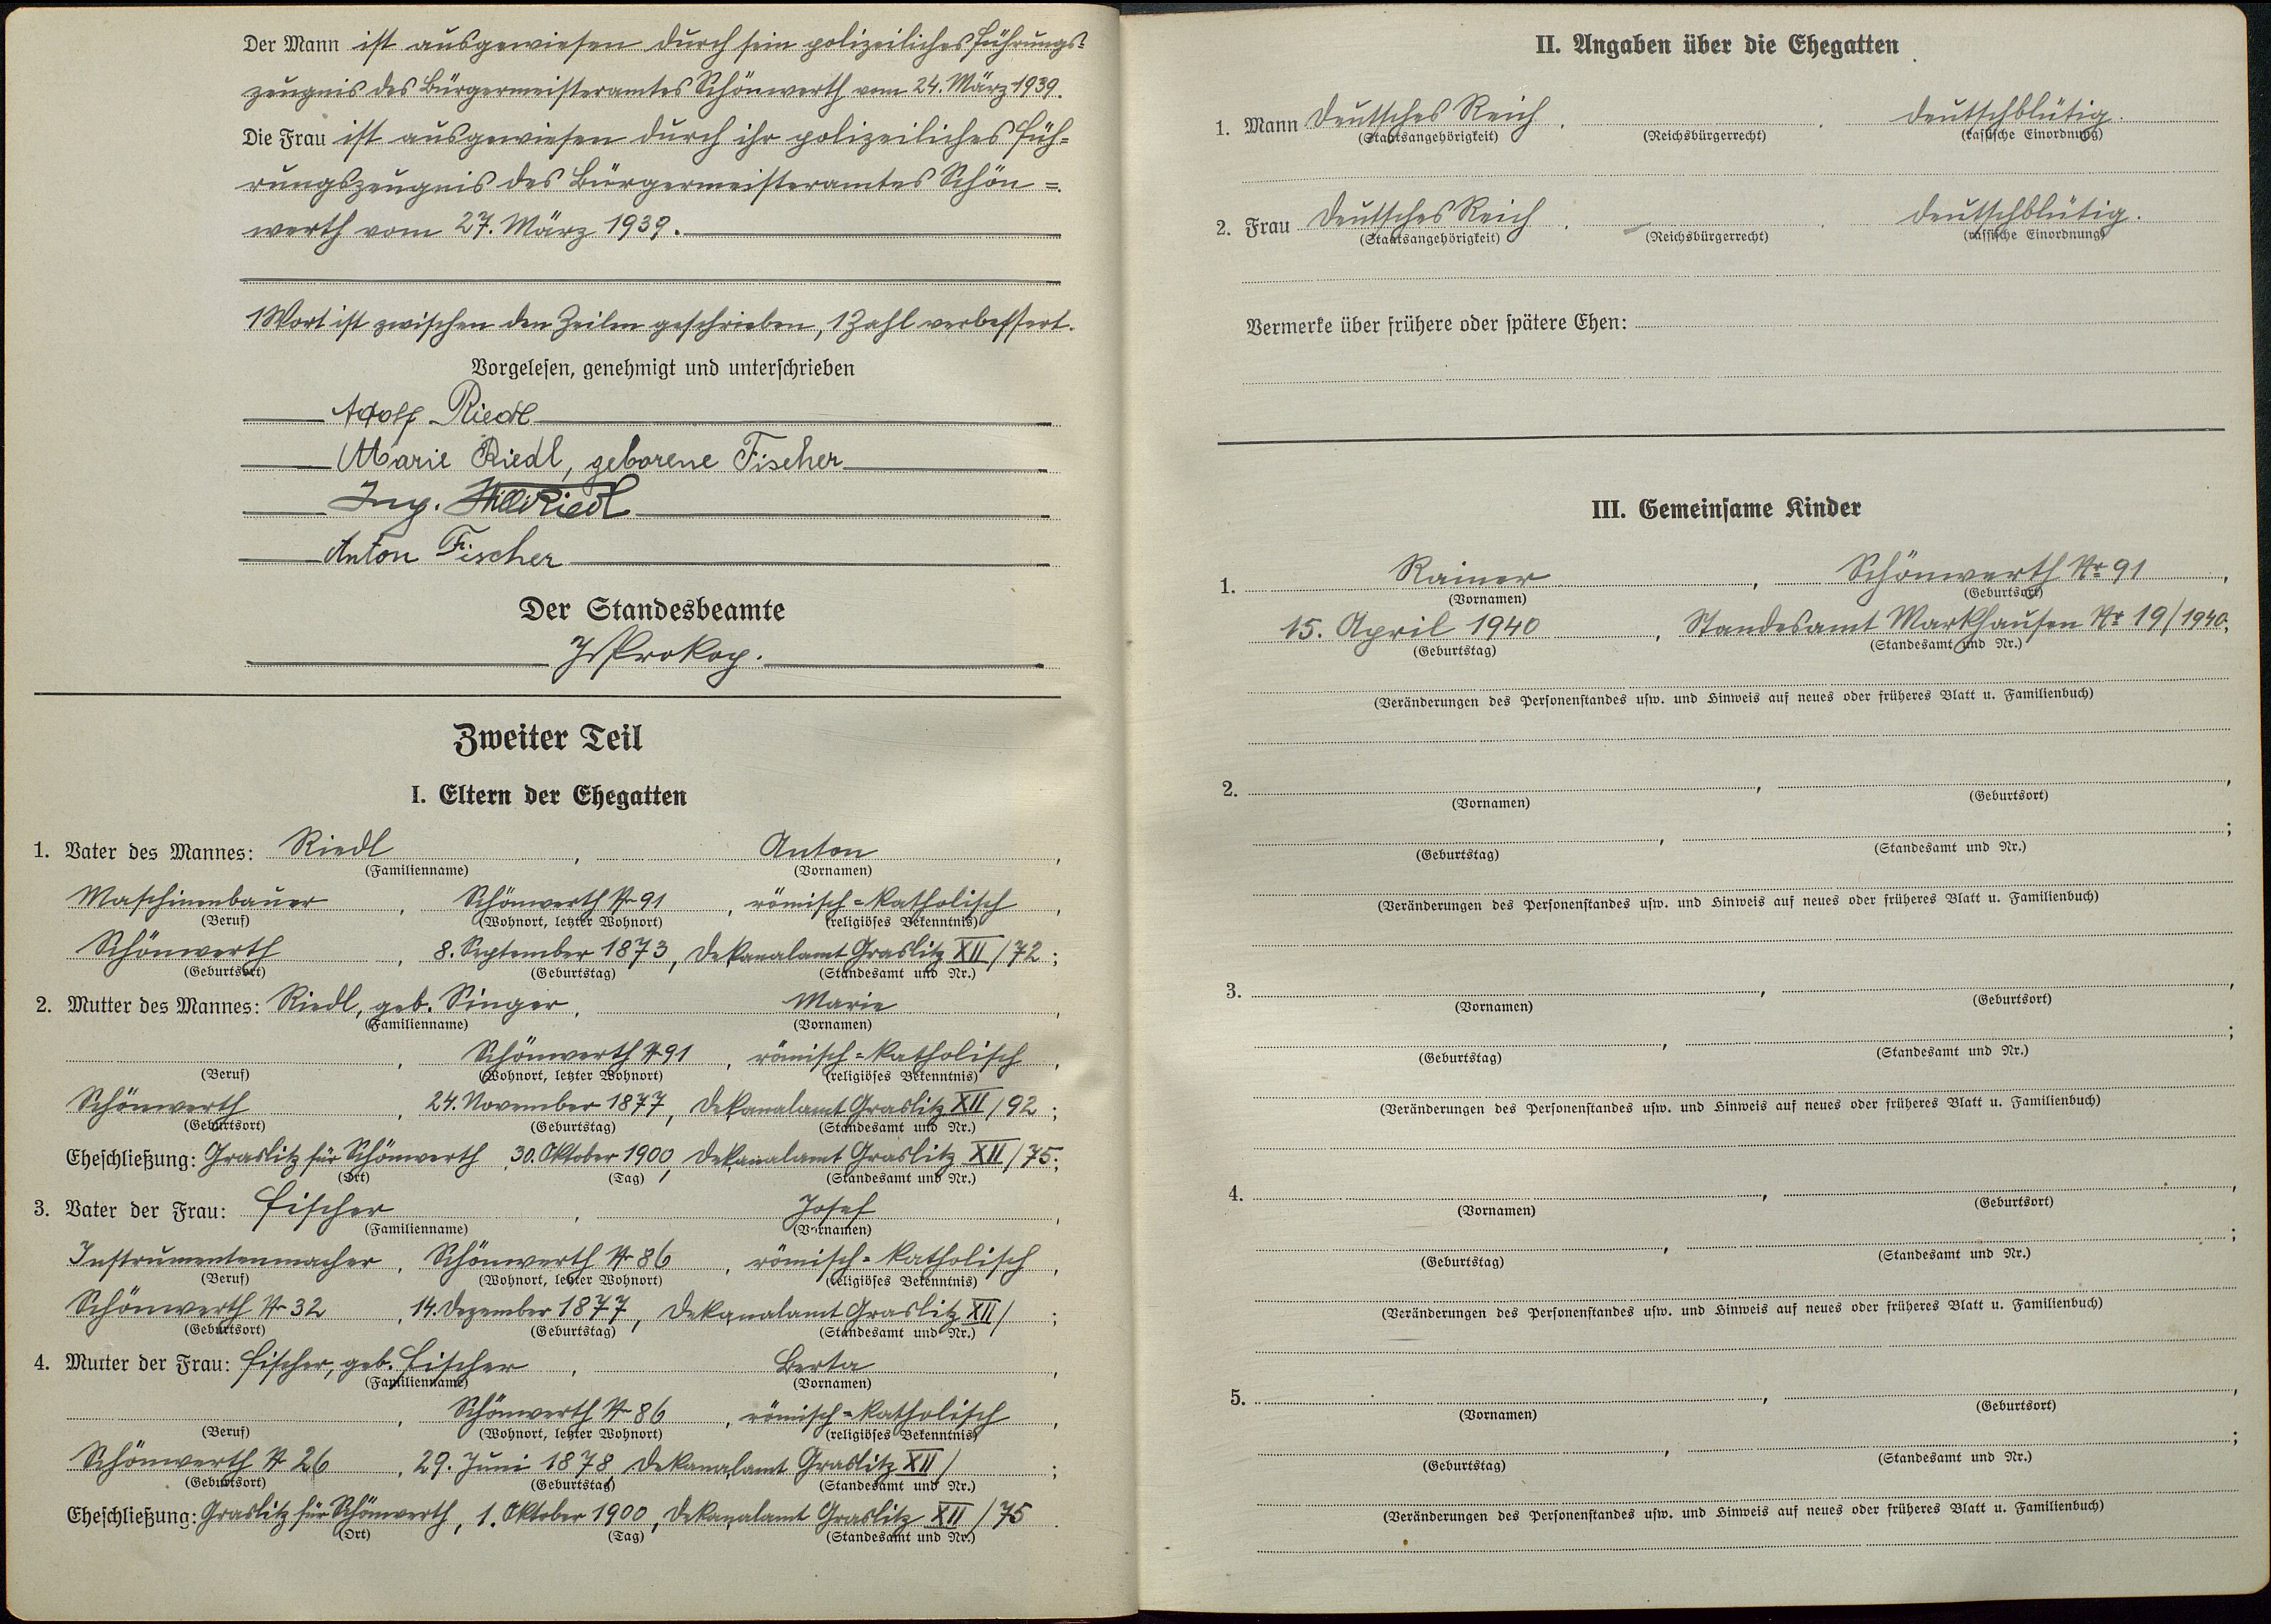 Der Mann ist ausgewiesen durch sein polizeiliches Führungs=
zeugnis des Bürgermeisteramtes Schönwerth vom 24. März 1939.
Die Frau ist ausgewiesen durch ihr polizeiliches Füh=
rungszeugnis des Bürgermeisteramtes Schön=
werth vom 27. März 1939.
1 Wort ist zwischen den Zeilen geschrieben, 1 Zahl verbessert.
Vorgelesen, genehmigt und unterschrieben
Adolf Riedl
Marie Riedl, geborene Fischer
Ing. Willi Riedl
Anton Fischer
Der Standesbeamte
Prokop.
Zweiter Teil
I. Eltern der Ehegatten
1. Vater des Mannes: Riedl, Anton,
(Familienname) (Vornamen)
Maschinenbauer, Schönwerth Nr 91, römisch=katholisch,
(Beruf) (Wohnort, letzter Wohnort) (religiöses Bekenntnis)
Schönwerth, 8. September 1873, Dekanalamt Graslitz XII/72;
(Geburtsort) (Geburtstag) (Standesamt und Nr.)
2. Mutter des Mannes: Riedl, geb. Singer, Marie,
(Familienname) (Vornamen)
, Schönwerth Nr 91, römisch=katholisch,
(Beruf) (Wohnort, letzter Wohnort) (religiöses Bekenntnis)
Schönwerth, 24. November 1877, Dekanalamt Graslitz XII/92;
(Geburtsort) (Geburtstag) (Standesamt und Nr.)
Eheschließung: Graslitz für Schönwerth, 30. Oktober 1900, Dekanalamt Graslitz XII/75;
(Ort) (Tag) (Standesamt und Nr.)
3. Vater der Frau: Fischer, Josef,
(Familienname) (Vornamen)
Instrumentenmacher, Schönwerth Nr 86, römisch=katholisch,
(Beruf) (Wohnort, letzter Wohnort) (religiöses Bekenntnis)
Schönwerth Nr 32, 14. Dezember 1877, Dekanalamt Graslitz XII/ ;
(Geburtsort) (Geburtstag) (Standesamt und Nr.)
4. Mutter der Frau: Fischer, geb. Fischer, Berta,
(Familienname) (Vornamen)
, Schönwerth Nr 86, römisch=katholisch,
(Beruf) (Wohnort, letzter Wohnort) (religiöses Bekenntnis)
Schönwerth Nr 26, 29. Juni 1878 Dekanalamt Graslitz XII/ ;
(Geburtsort) (Geburtstag) (Standesamt und Nr.)
Eheschließung: Graslitz für Schönwerth, 1. Oktober 1900, Dekanalamt Graslitz XII/75.
(Ort) (Tag) (Standesamt und Nr.)
II. Angaben über die Ehegatten
1. Mann Deutsches Reich, , deutschblütig.
(Staatsangehörigkeit) (Reichsbürgerrecht) (rassische Einordnung)
2. Frau Deutsches Reich, , deutschblütig.
(Staatsangehörigkeit) (Reichsbürgerrecht) (rassische Einordnung)
Vermerke über frühere oder spätere Ehen:
III. Gemeinsame Kinder
1. Rainer, Schönwerth Nr 91,
(Vornamen) (Geburtsort)
15. April 1940, Standesamt Markhausen Nr 19/1940;
(Geburtstag) (Standesamt und Nr.)
(Veränderungen des Personenstandes usw. und Hinweis auf neues oder früheres Blatt u. Familienbuch)
2. , ,
(Vornamen) (Geburtsort)
, ;
(Geburtstag) (Standesamt und Nr.)
(Veränderungen des Personenstandes usw. und Hinweis auf neues oder früheres Blatt u. Familienbuch)
3. , ,
(Vornamen) (Geburtsort)
, ;
(Geburtstag) (Standesamt und Nr.)
(Veränderungen des Personenstandes usw. und Hinweis auf neues oder früheres Blatt u. Familienbuch)
4. , ,
(Vornamen) (Geburtsort)
, ;
(Geburtstag) (Standesamt und Nr.)
(Veränderungen des Personenstandes usw. und Hinweis auf neues oder früheres Blatt u. Familienbuch)
5. , ,
(Vornamen) (Geburtsort)
, ;
(Geburtstag) (Standesamt und Nr.)
(Veränderungen des Personenstandes usw. und Hinweis auf neues oder früheres Blatt u. Familienbuch)